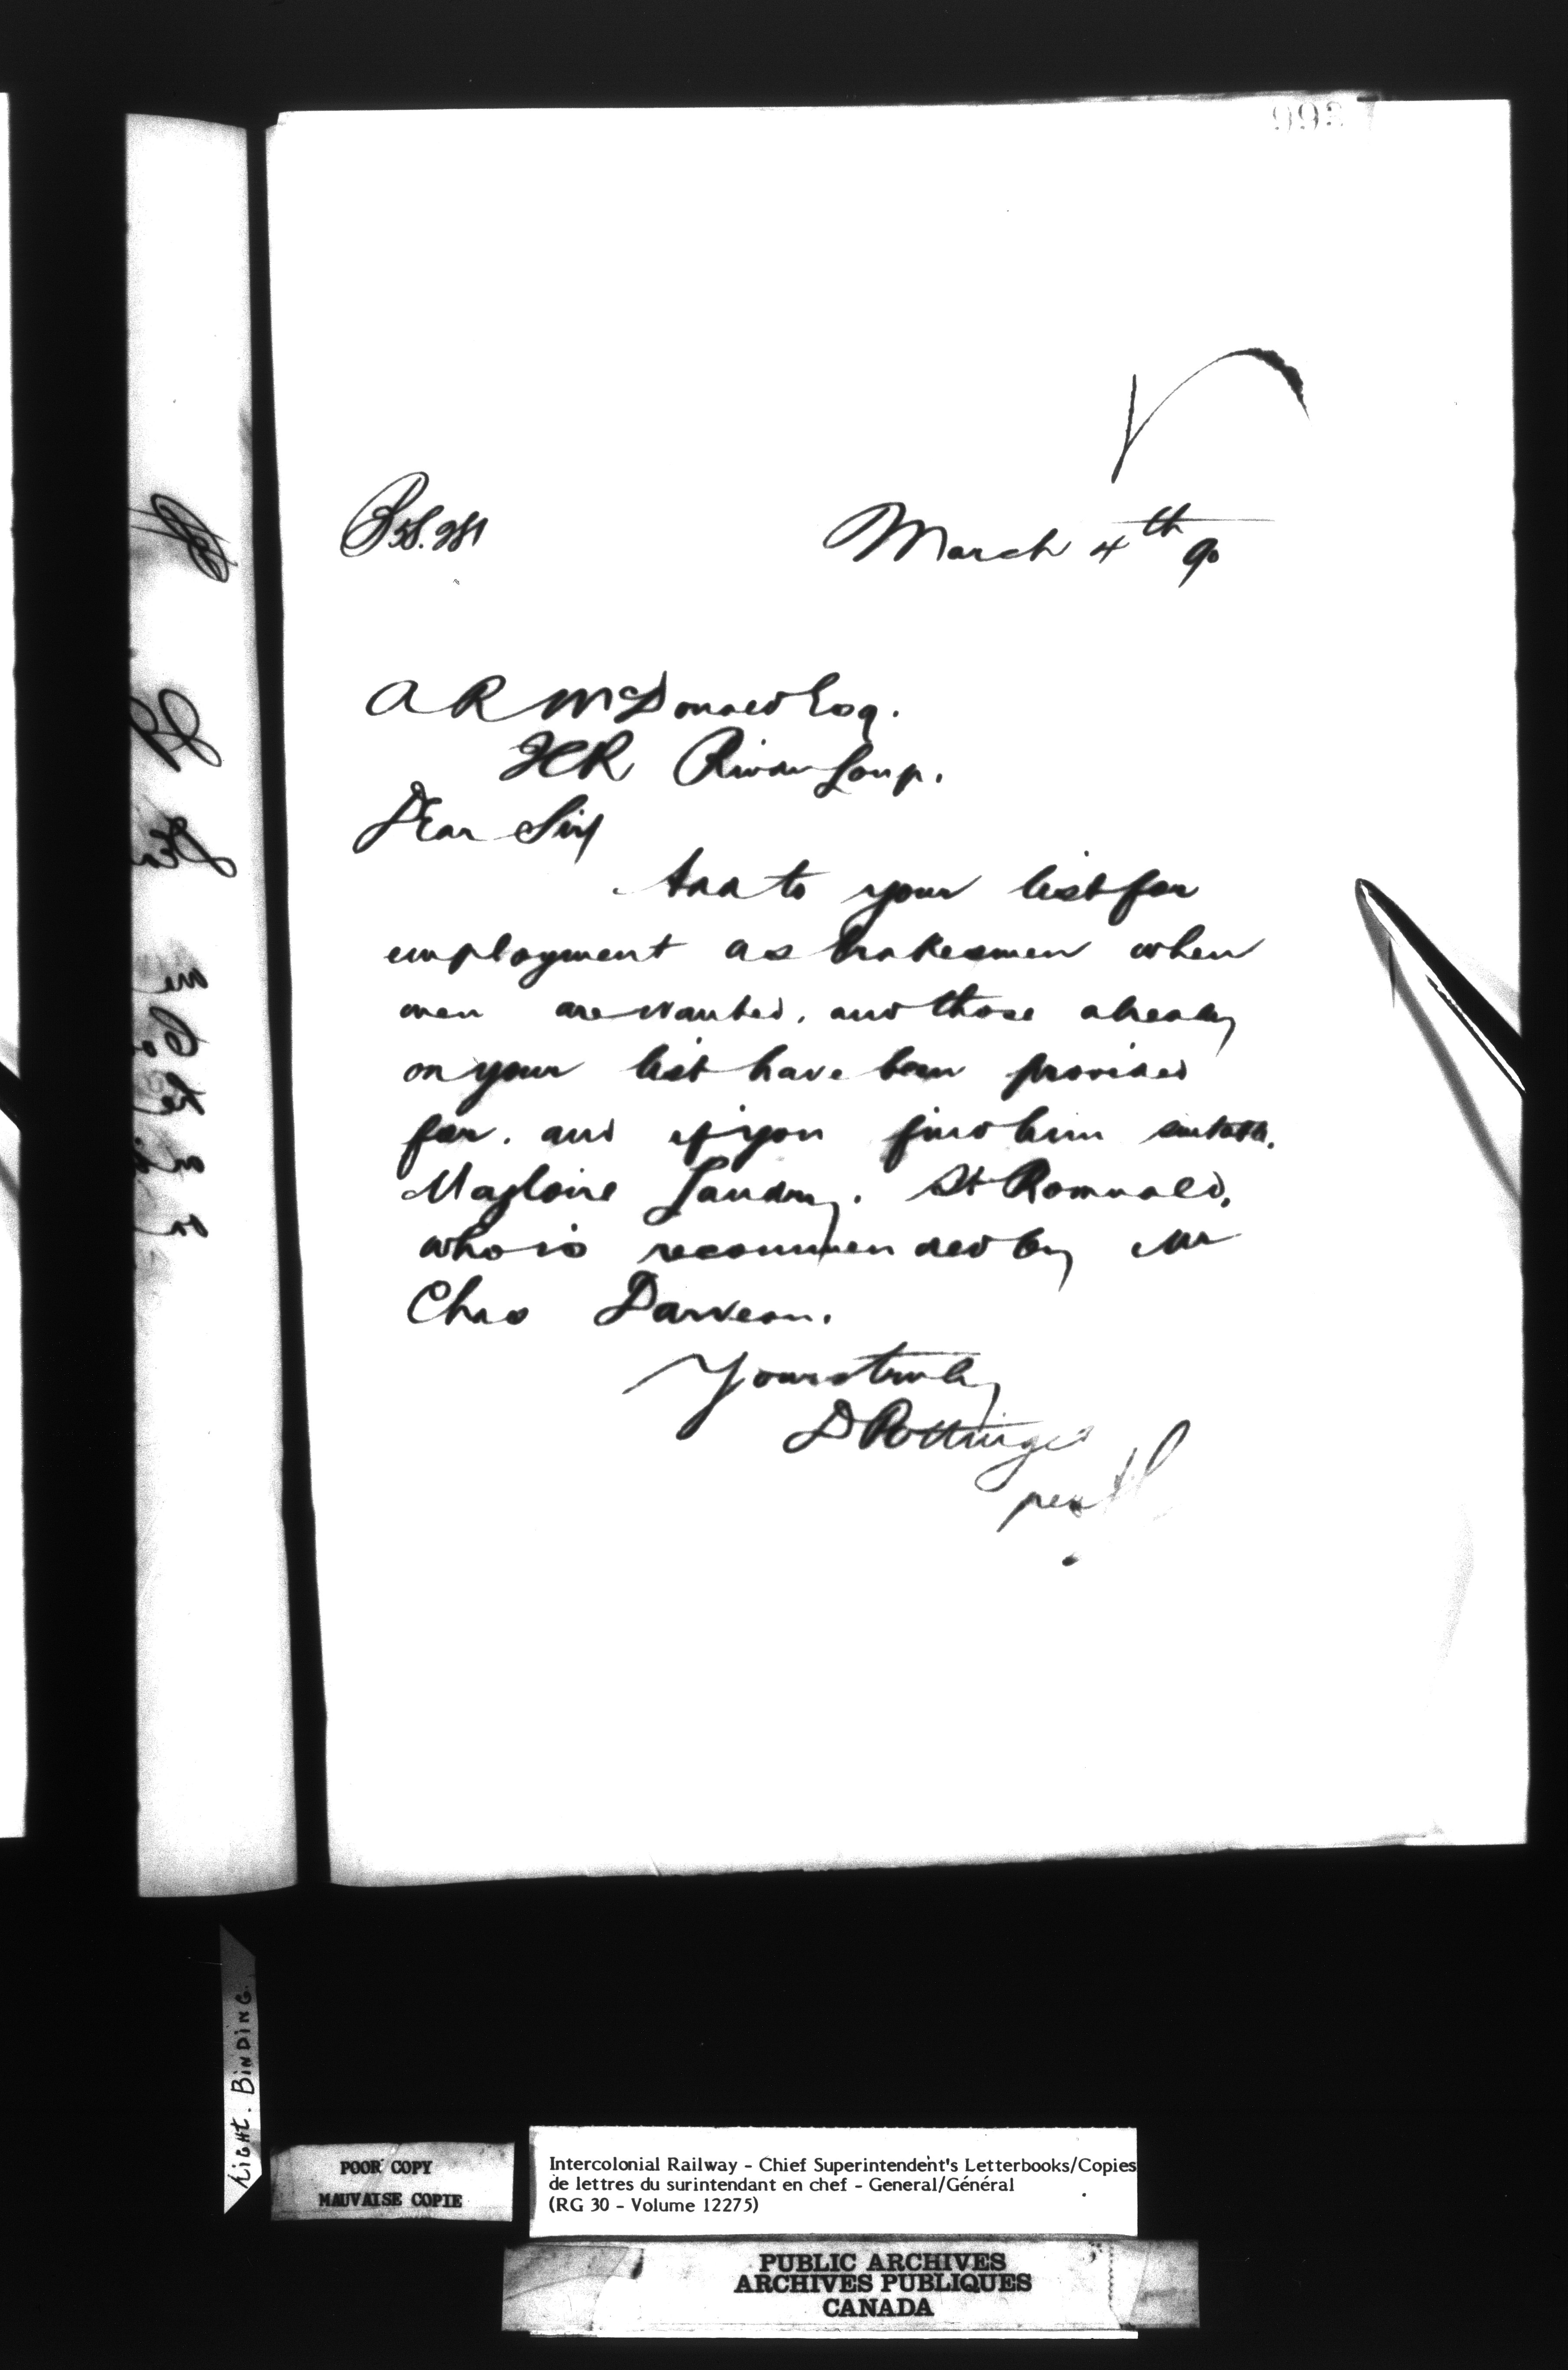 March 4th 90
A R McDonald Esq.
ICR River Loup.
Dear Sir
Add to your list for
employment as brakesmen when
men are wanted, and those already
on your list have been provided
for. and if you find him suitable.
Magloire Landry. St Romuald,
who is recommended by Mr
Chas Darveau.
Yours truly
D Pottinger
per
RIGHT. BINDING.
POOR COPY
MAUVAISE COPIE
Intercolonial Railway - Chief Superintendent's Letterbooks/Copies
de lettres du surintendant en chef - General/Général
(RG 30 - Volume 12275)
PUBLIC ARCHIVES
ARCHIVES PUBLIQUES
CANADA